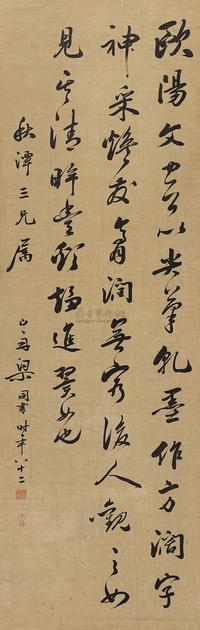 歐陽文忠公以尖筆乾墨作方闊字
神采煥發膏潤無窮後人觀之如
見其清眸豐頰揚進翼如也
秋潭三兄屬
山舟梁同書時年八十二